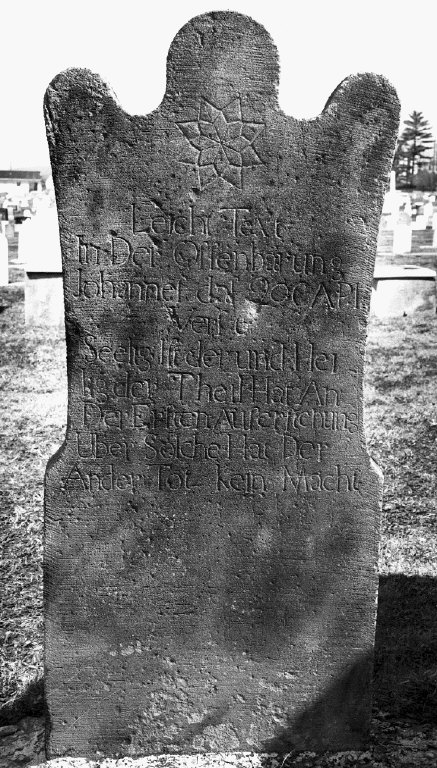 Leich Text
In Der Offenbarung
Johannet daſ 20CAPI
verſ 6
Seelig iſt der und Hei
lig der Theil Hat An
Der Erſten Auferſtehung
Uber Solche Hat Der
Ander Tot kein Macht